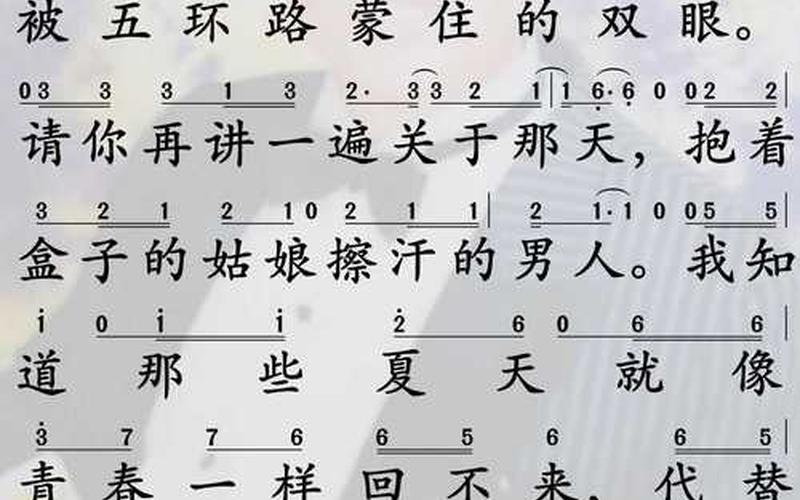 被五环路蒙住的双眼。
03 3 3 1 3 2· 3 3 2 1 | 1 6· 6 0 02 2 |
请你再讲一遍关于那天，抱着
3 2 1 2 1 0 2 1 1 | 2 1· 1 0 05 5 |
盒子的姑娘擦汗的男人。我知
i 0 i i 2 6 0 6 6 |
道那些夏天就像
3 7 7 6 6 5 6 6 5 |
青春一样回不来，代替